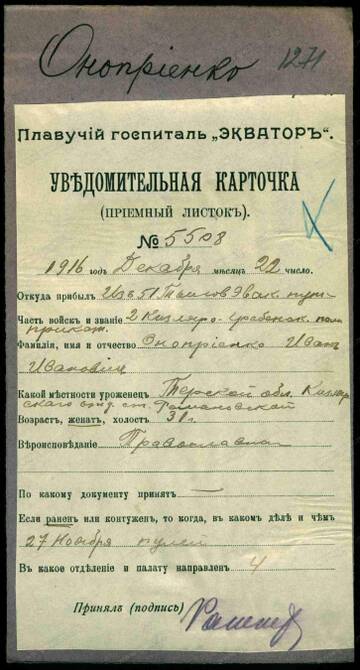 Онопріенко 1271
Плавучій госпиталь „ЭКВАТОРЪ“.
УВѢДОМИТЕЛЬНАЯ КАРТОЧКА
(ПРІЕМНЫЙ ЛИСТОКЪ).
№ 5508
1916 годъ Декабря мѣсяцъ 22 число.
Откуда прибылъ Изъ 51 Эвак. пун.
Часть войскъ и званіе 2 Кизляро-Гребенск. полк
приказ.
Фамилія, имя и отчество Онопріенко Иванъ
Ивановичъ
Какой мѣстности уроженецъ Терской обл. Кизляр
скаго отд. ст.
Возрастъ, женатъ, холостъ 31 г.
Вѣроисповѣданіе Православн
По какому документу принятъ —
Если раненъ или контуженъ, то когда, въ какомъ дѣлѣ и чѣмъ
27 Ноября пулей
Въ какое отдѣленіе и палату направленъ 4
Принялъ (подпись)